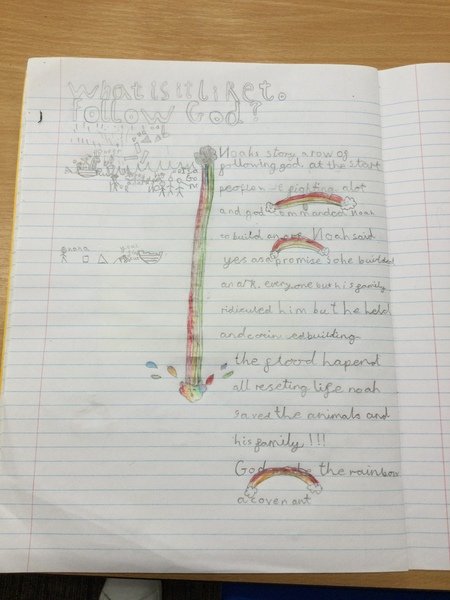 What is it like to.
follow God?
Noahs story arow of
following god. at the start
people fighting alot
and god commanded Noah
to build an ark. Noah said
yes as a promise so he builded
an ark. every one but his family
ridiculed him but he held
and building
the flood hapend
all reseting life noah
saved the animals and
his family !!!
God the rainbow
a covenant